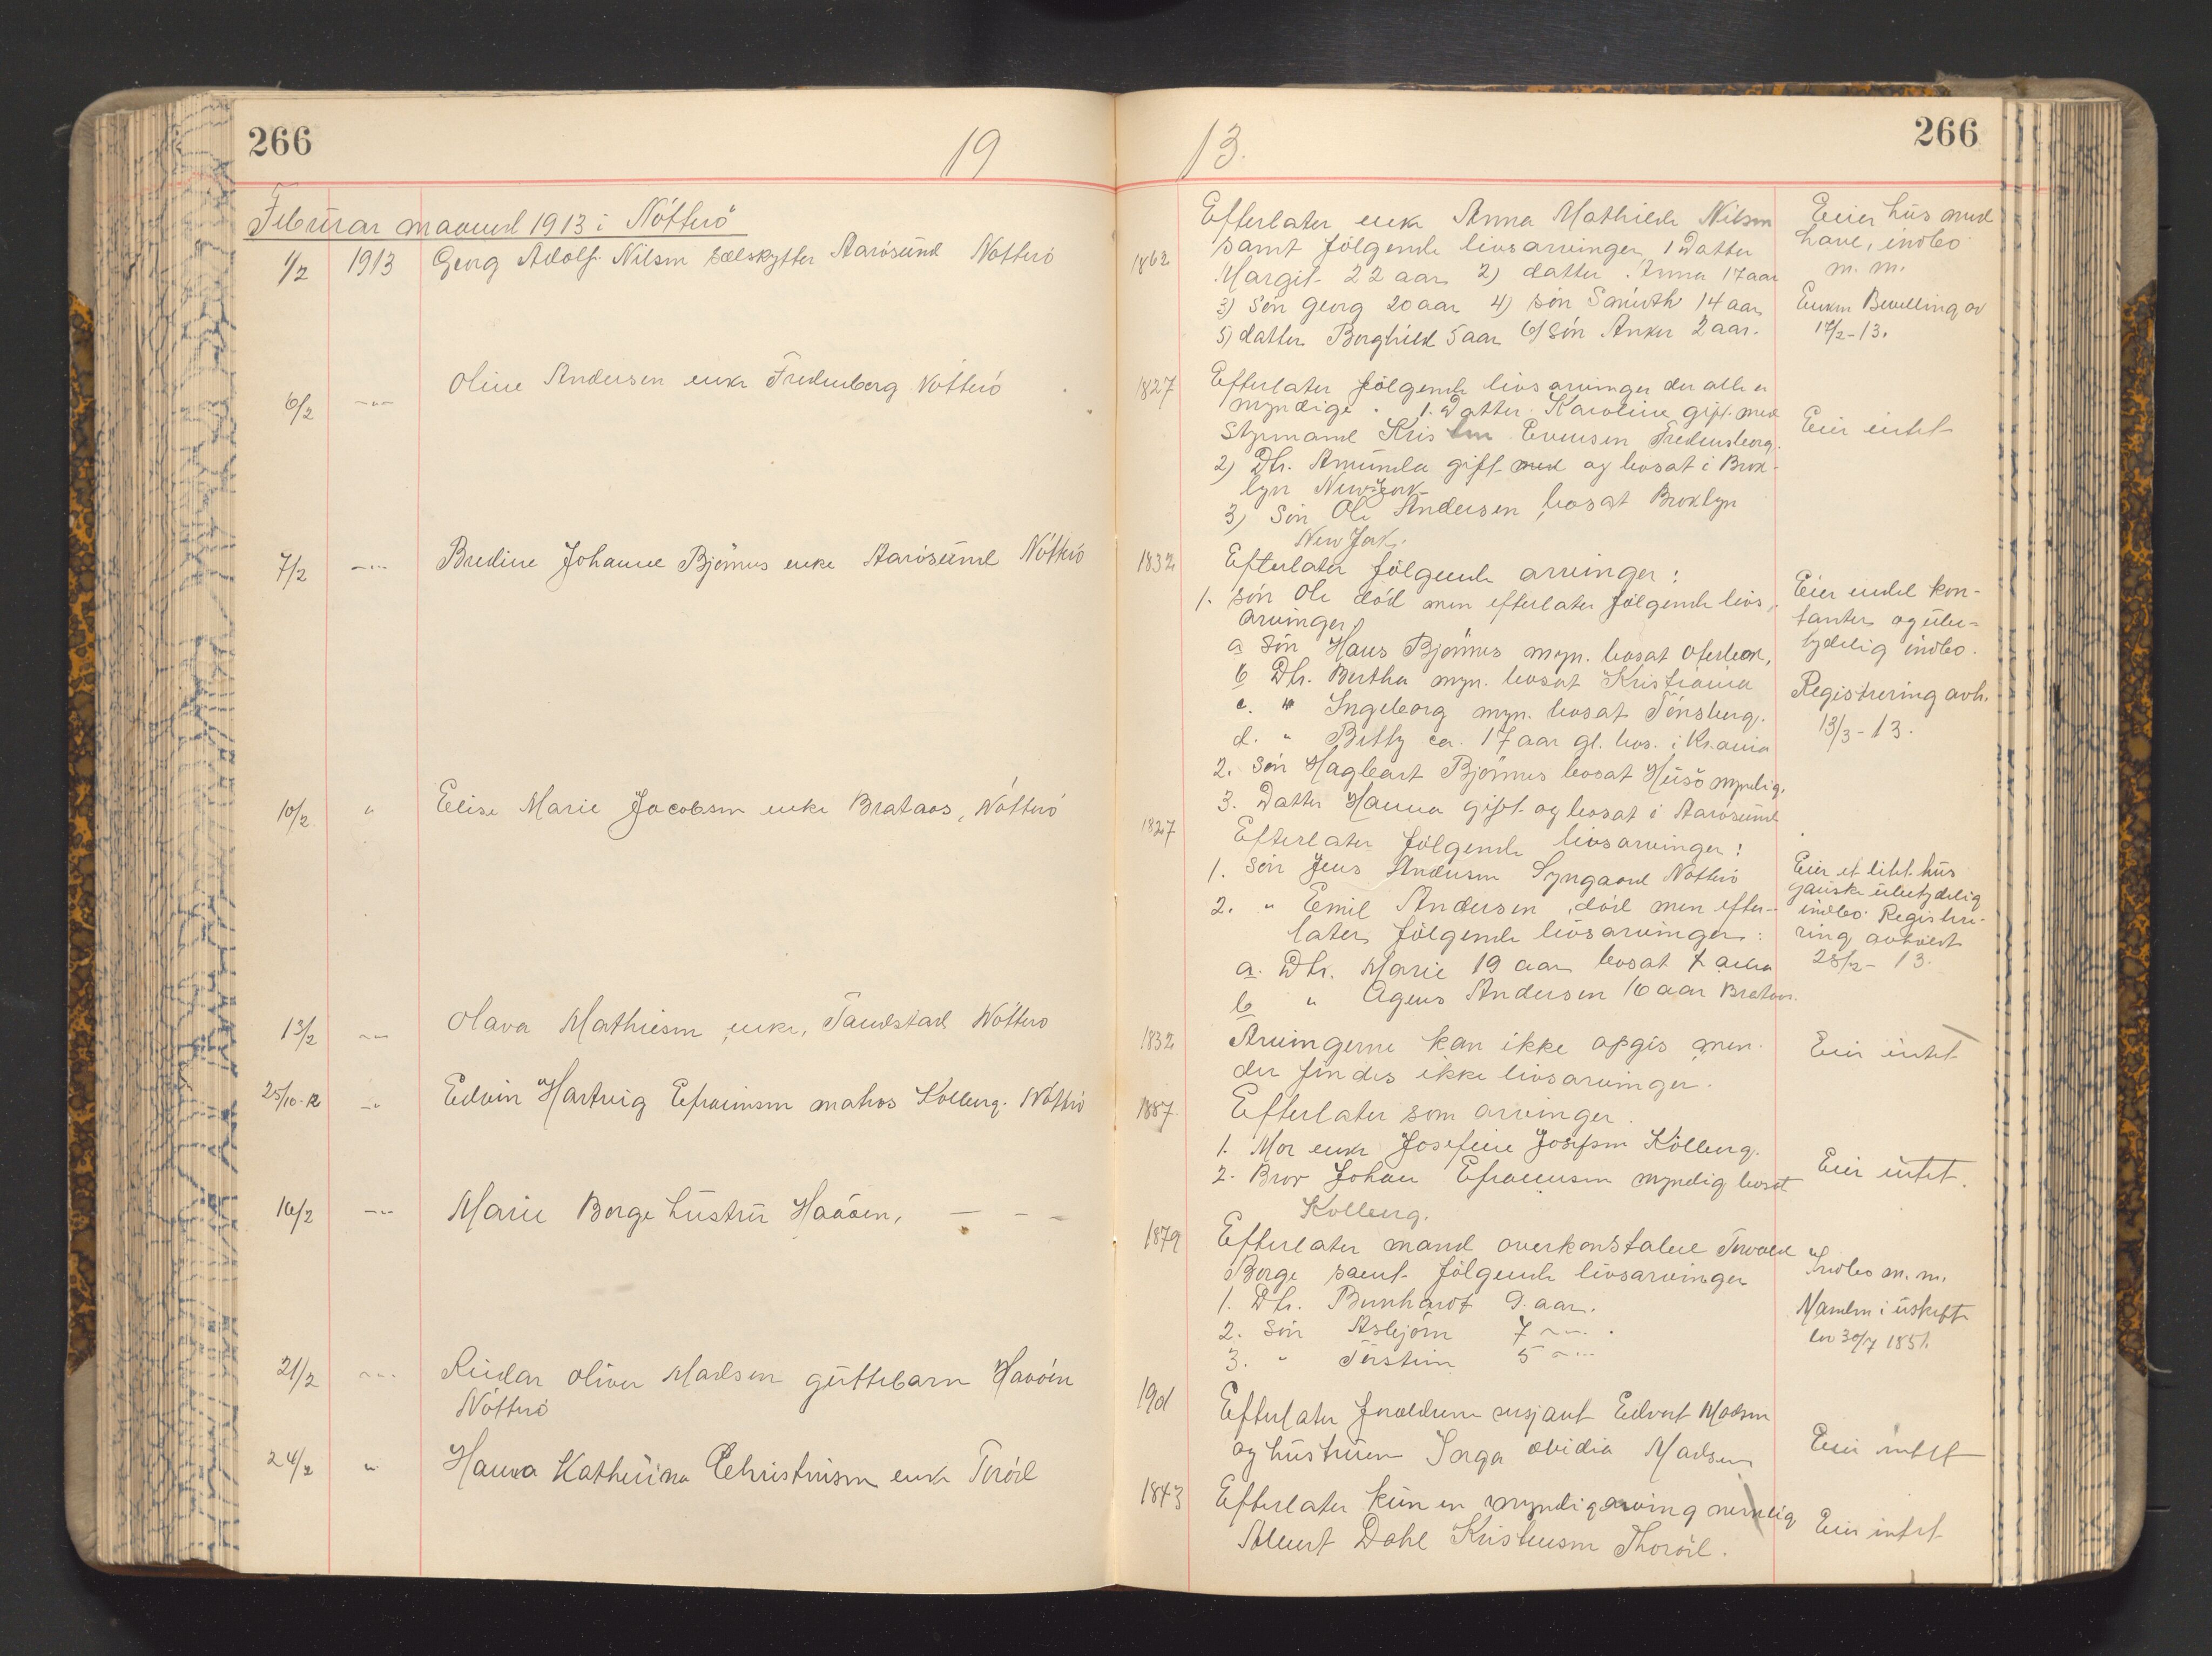 266
19
13.
266
Februar maaned 1913 i Nötterö
1/2 1913 Georg Adolf Nilsen sælskytter Aarösund Nötterö
1862
Efterlater enke Anna Mathilde Nilsen
samt fölgende livsarvinger, 1 Datter
Margit 22 aar 2) datter Anna 17 aar
3) Sön Georg 20 aar 4) sön 14 aar
5) datter Borghild 5 aar 6) Sön Anker 2 aar.
Eier hus med
have, indbo
m. m.
Enken Bevilling av
17/2-13.
6/2 -"- Oline Andersen enke Fredensborg Nötterö
1827
Efterlater fölgende livsarvinger der alle er
myndige. 1. Datter Karoline gift med
Styrmand Kris Evensen Fredensborg.
2) Dtr. Amunda gift med og bosat i Brok-
lyn New York
3) Sön Ole Andersen bosat Broklyn
New Jork.
Eier intet
7/2 -"- Bredine Johanne Bjönnes enke Aarösund Nötterö
1832
Efterlater fölgende arvinger:
1. sön Ole död men efterlater fölgende livs
arvinger
a Sön Hans Bjönnes myn. bosat
b Dtr. Bertha myn. bosat Kristiania
c. " Ingeborg myn. bosat Tönsberg.
d. " Betty ca. 17 aar gl. bos. i Kr.ania
2. Sön Hagbart Bjönnes bosat Husö myndig.
3. Datter Hanna gift og bosat i Aarösund
Eier endel kon-
tanter og ube-
tydelig indbo.
Registrering avh.
13/3-13.
10/2 " Elise Marie Jacobsen enke Brataas, Nötterö
1827
Efterlater fölgende livsarvinger:
1. Sön Jens Andersen Nötterö
2. " Emil Andersen, död men efter-
later fölgende livsarvinger:
a. Dtr. Marie 19 aar bosat
b " Agnes Andersen 16 aar Brataas.
Eier et litet hus
ganske ubetydelig
indbo. Registre-
ring avholdt
28/2-13.
13/2 -"- Olava Mathisen, enke, Nötterö
1832
Arvingerne kan ikke opgis men
der findes ikke livsarvinger.
Eier intet
25/10-12 -"- Edvin Hartvig Efraimsen matros Kolberg. Nötterö
1887.
Efterlater som arvinger.
1. Mor enke Josefine Josefsen Kölberg.
2. Bror Johan Efraimsen myndig bosat
Kolberg.
Eier intet.
16/2 -"- Marie Borge hustru Haaöen, - - -
1879
Efterlater mand overkonstabel Torvald
Borge samt fölgende livsarvinger
1. Dtr. Bernhardt 9 aar.
2. Sön Asbjörn 7 -"-.
3. " Torstein 5 -"-
Indbo m. m.
Manden i uskifte
lov 30/7 1851.
21/2 -"- Reidar Oliver Madsen guttebarn Haaöen
Nötterö
Efterlater forældrene sersjant Edvart Madsen
og hustruen Inga Ovidia Madsen
Eier intet
24/2 " Hanna Kathrina Christensen enke Toröd
1843
Efterlater kun en myndig arving nemlig
Albert Dahl Kristensen Thoröd.
Eier intet